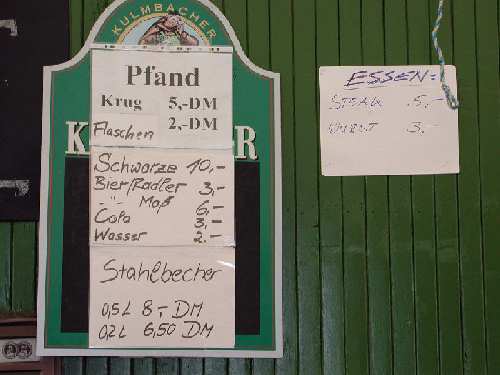 KULMBACHER
Pfand
Krug 5,-DM
Flaschen 2,-DM
Schwarze 10,-
Bier/Radler 3,-
-"- Maß 6,-
Cola 3,-
Wasser 2.-
Stahlbecher
0,5L 8,- DM
0,2L 6,50 DM
ESSEN:
STEAK 5,-
WURST 3,-